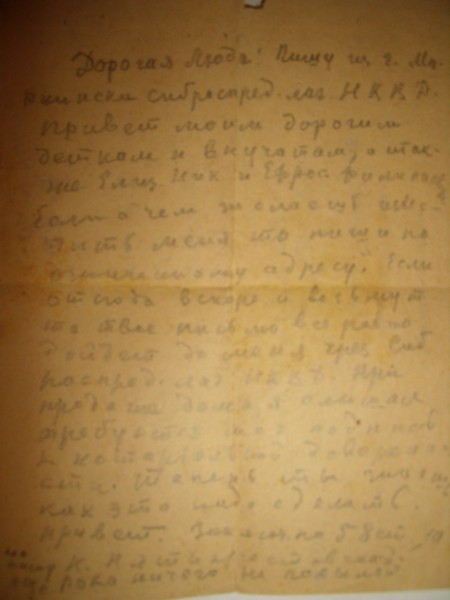 Дорогая Люда! Пишу из г. Ма-
риинска сибраспред. лаг. НКВД.
привет моим дорогим
деткам и внучатам, а так-
же Елиз. Ник и Ефрос.
Если о чем желаешь изве-
стить меня то пиши по
означенному адресу. Если
отсюда вскоре и возьмут
то твое письмо все равно
дойдет до меня чрез Сиб
распред. лаг НКВД. При
продаже дома я слышал
требуется моя подпись
к нотариальной доверено
сти. Теперь ты
как это надо сделать.
привет. по 58 ст, 10
пока ничего не